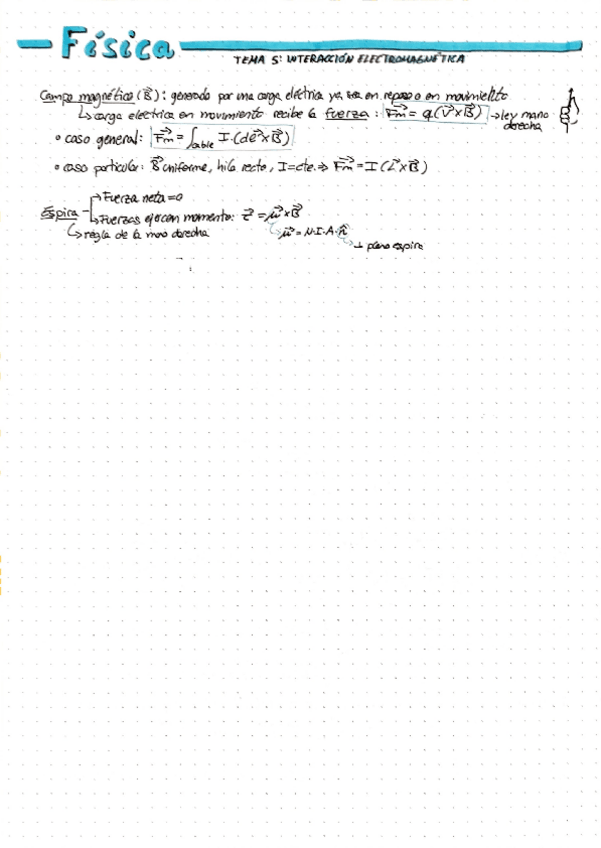 Física
TEMA 5: INTERACCIÓN ELECTROMAGNÉTICA
Campo magnético (B⃗): generado por una carga eléctrica ya sea en reposo o en movimiento
↳ carga eléctrica en movimiento recibe la fuerza: F⃗m = q(v⃗ x B⃗) → ley mano derecha
• caso general: F⃗m = ∫cable I·(dℓ⃗ x B⃗)
• caso particular: B⃗ uniforme, hilo recto, I=cte. ⇒ F⃗m = I (L⃗ x B⃗)
Espira → Fuerza neta = 0
↳ Fuerzas ejercen momento: τ⃗ = μ⃗ x B⃗
↳ regla de la mano derecha ↳ μ⃗ = N·I·A·n⃗
↳ ⊥ plano espira